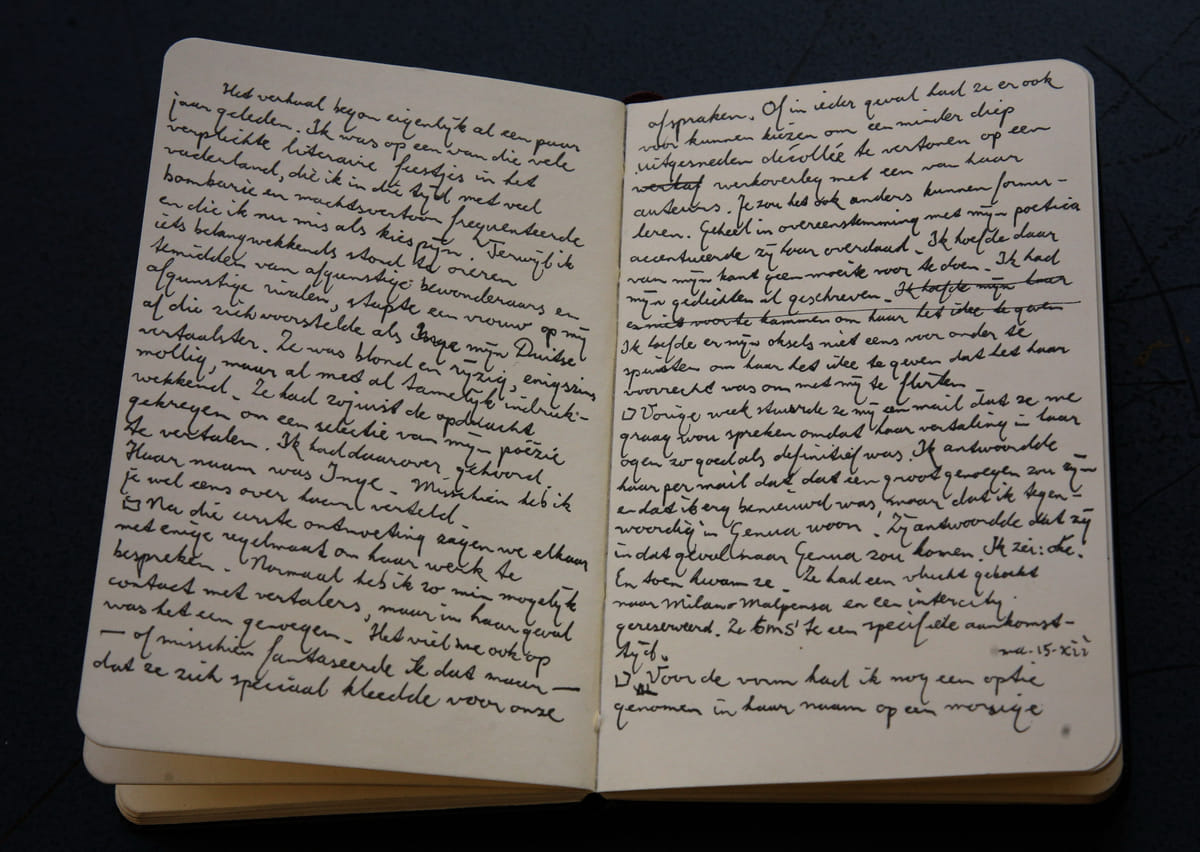 Het verhaal begon eigenlijk al een paar
jaar geleden. Ik was op een van die vele
verplichte literaire feestjes in het
vaderland, die ik in die tijd met veel
bombarie en machtsvertoon frequenteerde
en die ik nu mis als kiespijn. Terwijl ik
iets belangwekkends stond te oreren
temidden van afgunstige bewonderaars en
afgunstige rivalen, stapte een vrouw op mij
af die zich voorstelde als Inge mijn Duitse
vertaalster. Ze was blond en rijzig, enigszins
mollig, maar al met al tamelijk indruk-
wekkend. Ze had zojuist de opdracht
gekregen om een selectie van mijn poëzie
te vertalen. Ik had daarover gehoord.
Haar naam was Inge. Misschien heb ik
je wel eens over haar verteld.
Na die eerste ontmoeting zagen we elkaar
met enige regelmaat om haar werk te
bespreken. Normaal heb ik zo min mogelijk
contact met vertalers, maar in haar geval
was het een genoegen. Het viel me ook op
— of misschien fantaseerde ik dat maar —
dat ze zich speciaal kleedde voor onze
afspraken. Of in ieder geval had ze er ook
voor kunnen kiezen om een minder diep
uitgesneden décolleé te vertonen op een
werkoverleg met een van haar
auteurs. Je zou het ook anders kunnen formu-
leren. Geheel in overeenstemming met mijn poetica
accentueerde zij haar overdaad. Ik hoefde daar
van mijn kant geen moeite voor te doen. Ik had
mijn gedichten al geschreven. Ik hoefde mijn haar
er niet voor te kammen om haar het idee te geven
Ik hoefde er mijn oksels niet eens voor onder te
spuiten om haar het idee te geven dat het haar
voorrecht was om met mij te flirten.
Vorige week stuurde ze mij een mail dat ze me
graag wou spreken omdat haar vertaling in haar
ogen zo goed als definitief was. Ik antwoordde
haar per mail dat dat een groot genoegen zou zijn
en dat ik erg benieuwd was, maar dat ik tegen-
woordig in Genua woon. Zij antwoordde dat zij
in dat geval naar Genua zou komen. Ik zei: oke.
En toen kwam ze. Ze had een vlucht geboekt
naar Milano Malpensa en een intercity
gereserveerd. Ze sms'te een specifieke aankomst-
tijd.
ma. 15-xii
Voor de vorm had ik nog een optie
genomen in haar naam op een morsige